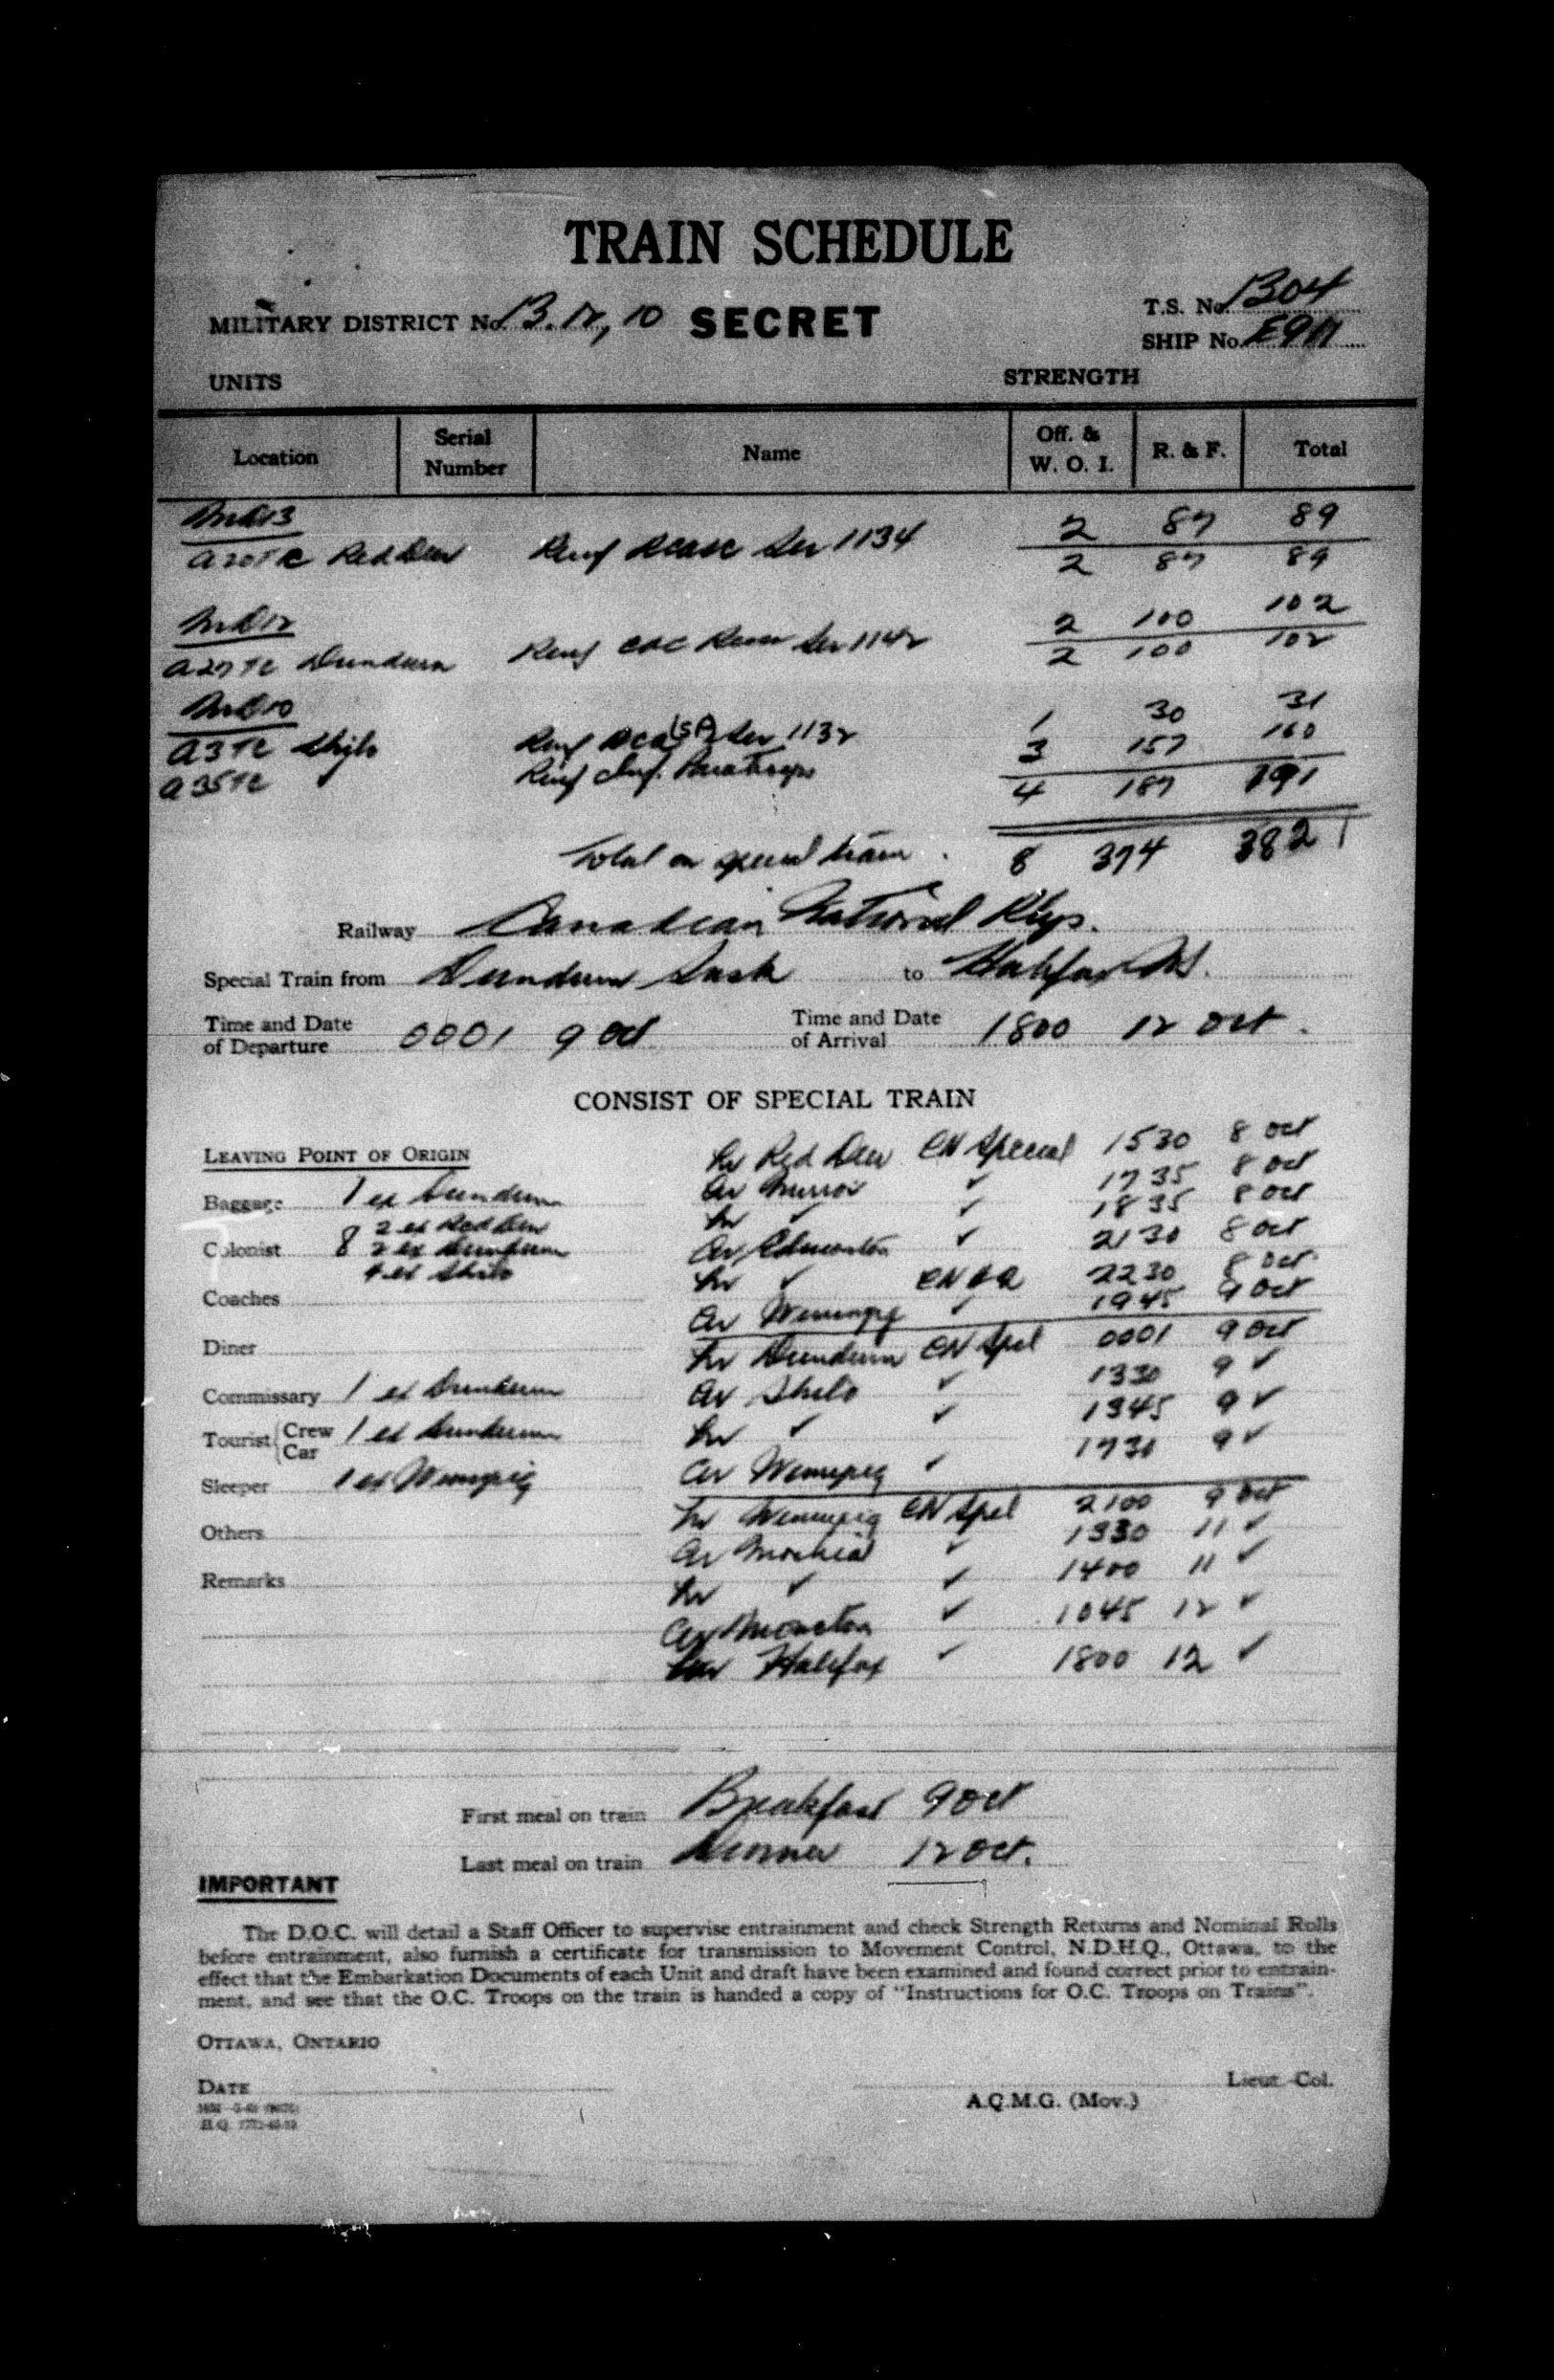 TRAIN SCHEDULE
MILITARY DISTRICT No. 13. 12, 10 SECRET
T.S. No. 1304
SHIP No.
UNITS STRENGTH
Location Serial Number Name Off. & W. O. I. R. & F. Total
MD13 2 87 89
A20TC Red Deer Reinf RCASC Ser 1134 2 87 89
MD12 2 100 102
A27 TC Dundurn Reinf CAC Ser 1142 2 100 102
MD10 1 30 31
A3 TC Shilo Reinf RCA (SP) Ser 1132 3 157 160
A35TC Reinf Inf. Paratroops 4 187 191
Total on special train . 8 374 382
Railway Canadian National Rlys.
Special Train from Dundurn Sask to Halifax NS.
Time and Date of Departure 0001 9 Oct Time and Date of Arrival 1800 12 Oct.
CONSIST OF SPECIAL TRAIN
LEAVING POINT OF ORIGIN
Baggage 1 ex Dundurn
Colonist 8 2 ex Red Deer
2 ex Dundurn
4 ex Shilo
Coaches
Diner
Commissary 1 ex Dundurn
Tourist { Crew Car 1 ex Dundurn
Sleeper 1 ex Winnipeg
Others
Remarks
Lv Red Deer CN Special 1530 8 Oct
Ar Mirror ✓ 1735 8 Oct
Lv ✓ ✓ 1835 8 Oct
Ar Edmonton ✓ 2130 8 Oct
Lv ✓ CN 2230 8 Oct
Ar Winnipeg ✓ 1945 9 Oct
Lv Dundurn CN Spel 0001 9 Oct
Ar Shilo ✓ 1330 9 ✓
Lv ✓ ✓ 1345 9 ✓
Ar Winnipeg ✓ 1730 9 ✓
Lv Winnipeg CN Spel 2100 9 Oct
Ar Montreal ✓ 1330 11 ✓
Lv ✓ ✓ 1400 11 ✓
Ar Moncton ✓ 1045 12 ✓
Ar Halifax ✓ 1800 12 ✓
First meal on train Breakfast 9 Oct
Last meal on train Dinner 12 Oct.
IMPORTANT
The D.O.C. will detail a Staff Officer to supervise entrainment and check Strength Returns and Nominal Rolls
before entrainment, also furnish a certificate for transmission to Movement Control, N.D.H.Q., Ottawa, to the
effect that the Embarkation Documents of each Unit and draft have been examined and found correct prior to entrain-
ment, and see that the O.C. Troops on the train is handed a copy of "Instructions for O.C. Troops on Trains".
OTTAWA, ONTARIO
DATE
Lieut.-Col.
A.Q.M.G. (Mov.)
H.Q.